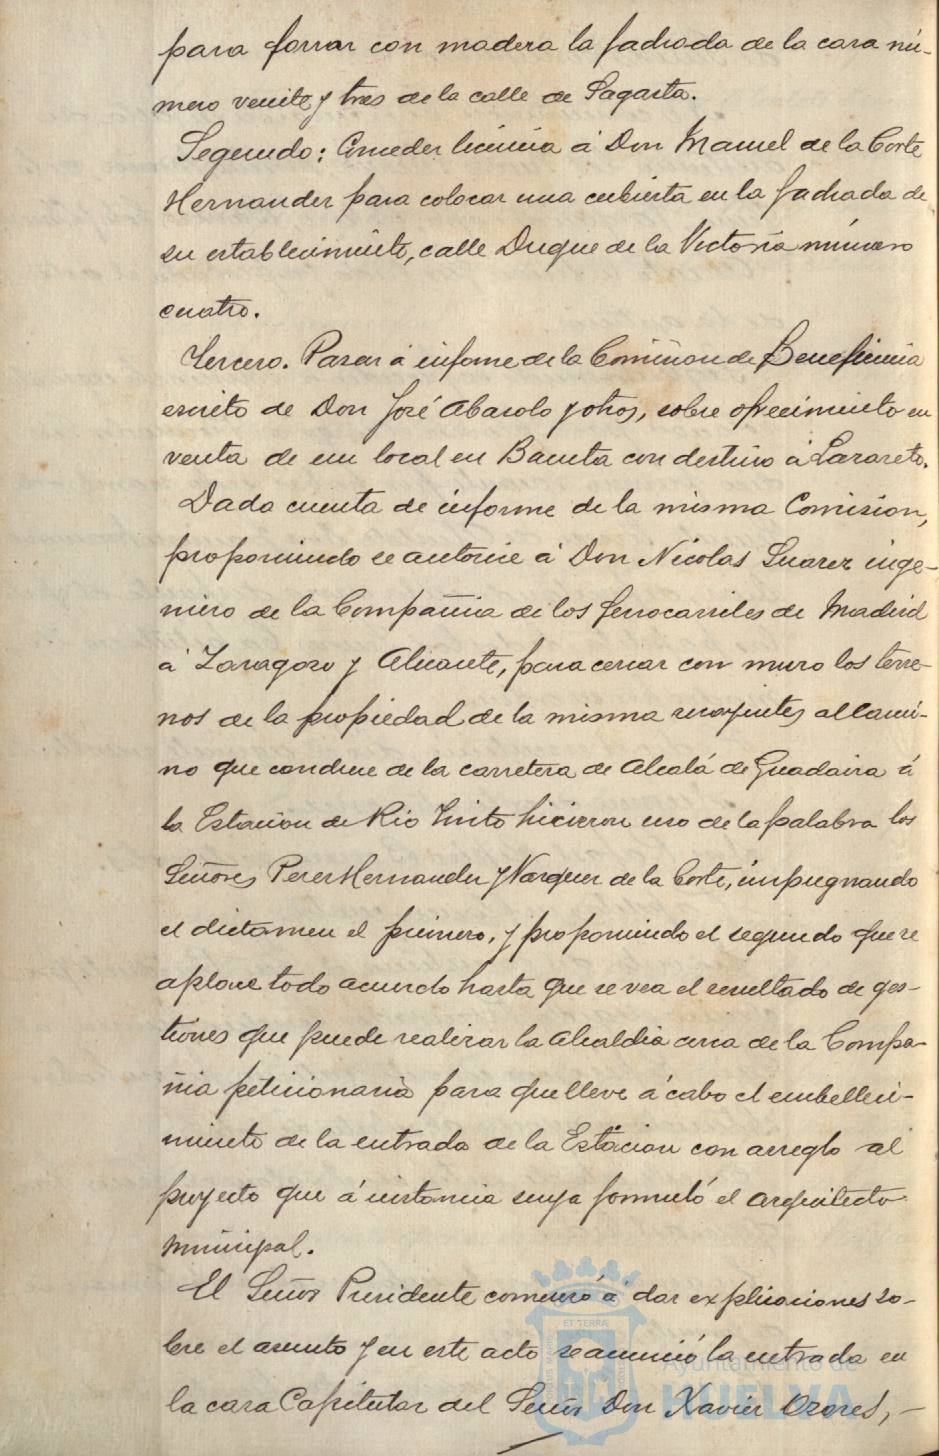 para forrar con madera la fachada de la casa nú-
mero veinte y tres de la calle de Sagasta.
Segundo: Conceder licencia á Don Manuel de la Corte
Hernandez para colocar una cubierta en la fachada de
su establecimiento, calle Duque de la Victoria número
cuatro.
Tercero. Pasar á informe de la Comision de Beneficencia
escrito de Don José Abasolo y otros, sobre ofrecimiento en
venta de un local en Bacuta con destino á Lazareto.
Dada cuenta de informe de la misma Comision,
proponiendo se autorice á Don Nicolas Suarez inge-
niero de la Compañia de los ferrocarriles de Madrid
á Zaragoza y Alicante, para cercar con muro los terre-
nos de la propiedad de la misma recayentes al cami-
no que conduce de la carretera de Alcalá de Guadaira á
la Estacion de Rio Tinto hicieron uso de la palabra los
Señores Perez Hernandez y Vazquez de la Corte, impugnando
el dictamen el primero, y proponiendo el segundo que se
aplace todo acuerdo hasta que se vea el resultado de ges-
tiones que puede realizar la Alcaldia cerca de la Compa-
ñia peticionaria para que lleve á cabo el embelleci-
miento de la entrada de la Estacion con arreglo al
proyecto que á instancia suya formuló el arquitecto
Municipal.
El Señor Presidente comenzó á dar explicaciones so-
bre el asunto y en este acto se anunció la entrada en
la casa Capitular del Señor Don Xavier Ozores, —
ET TERRÆ
Ayuntamiento de
HUELVA